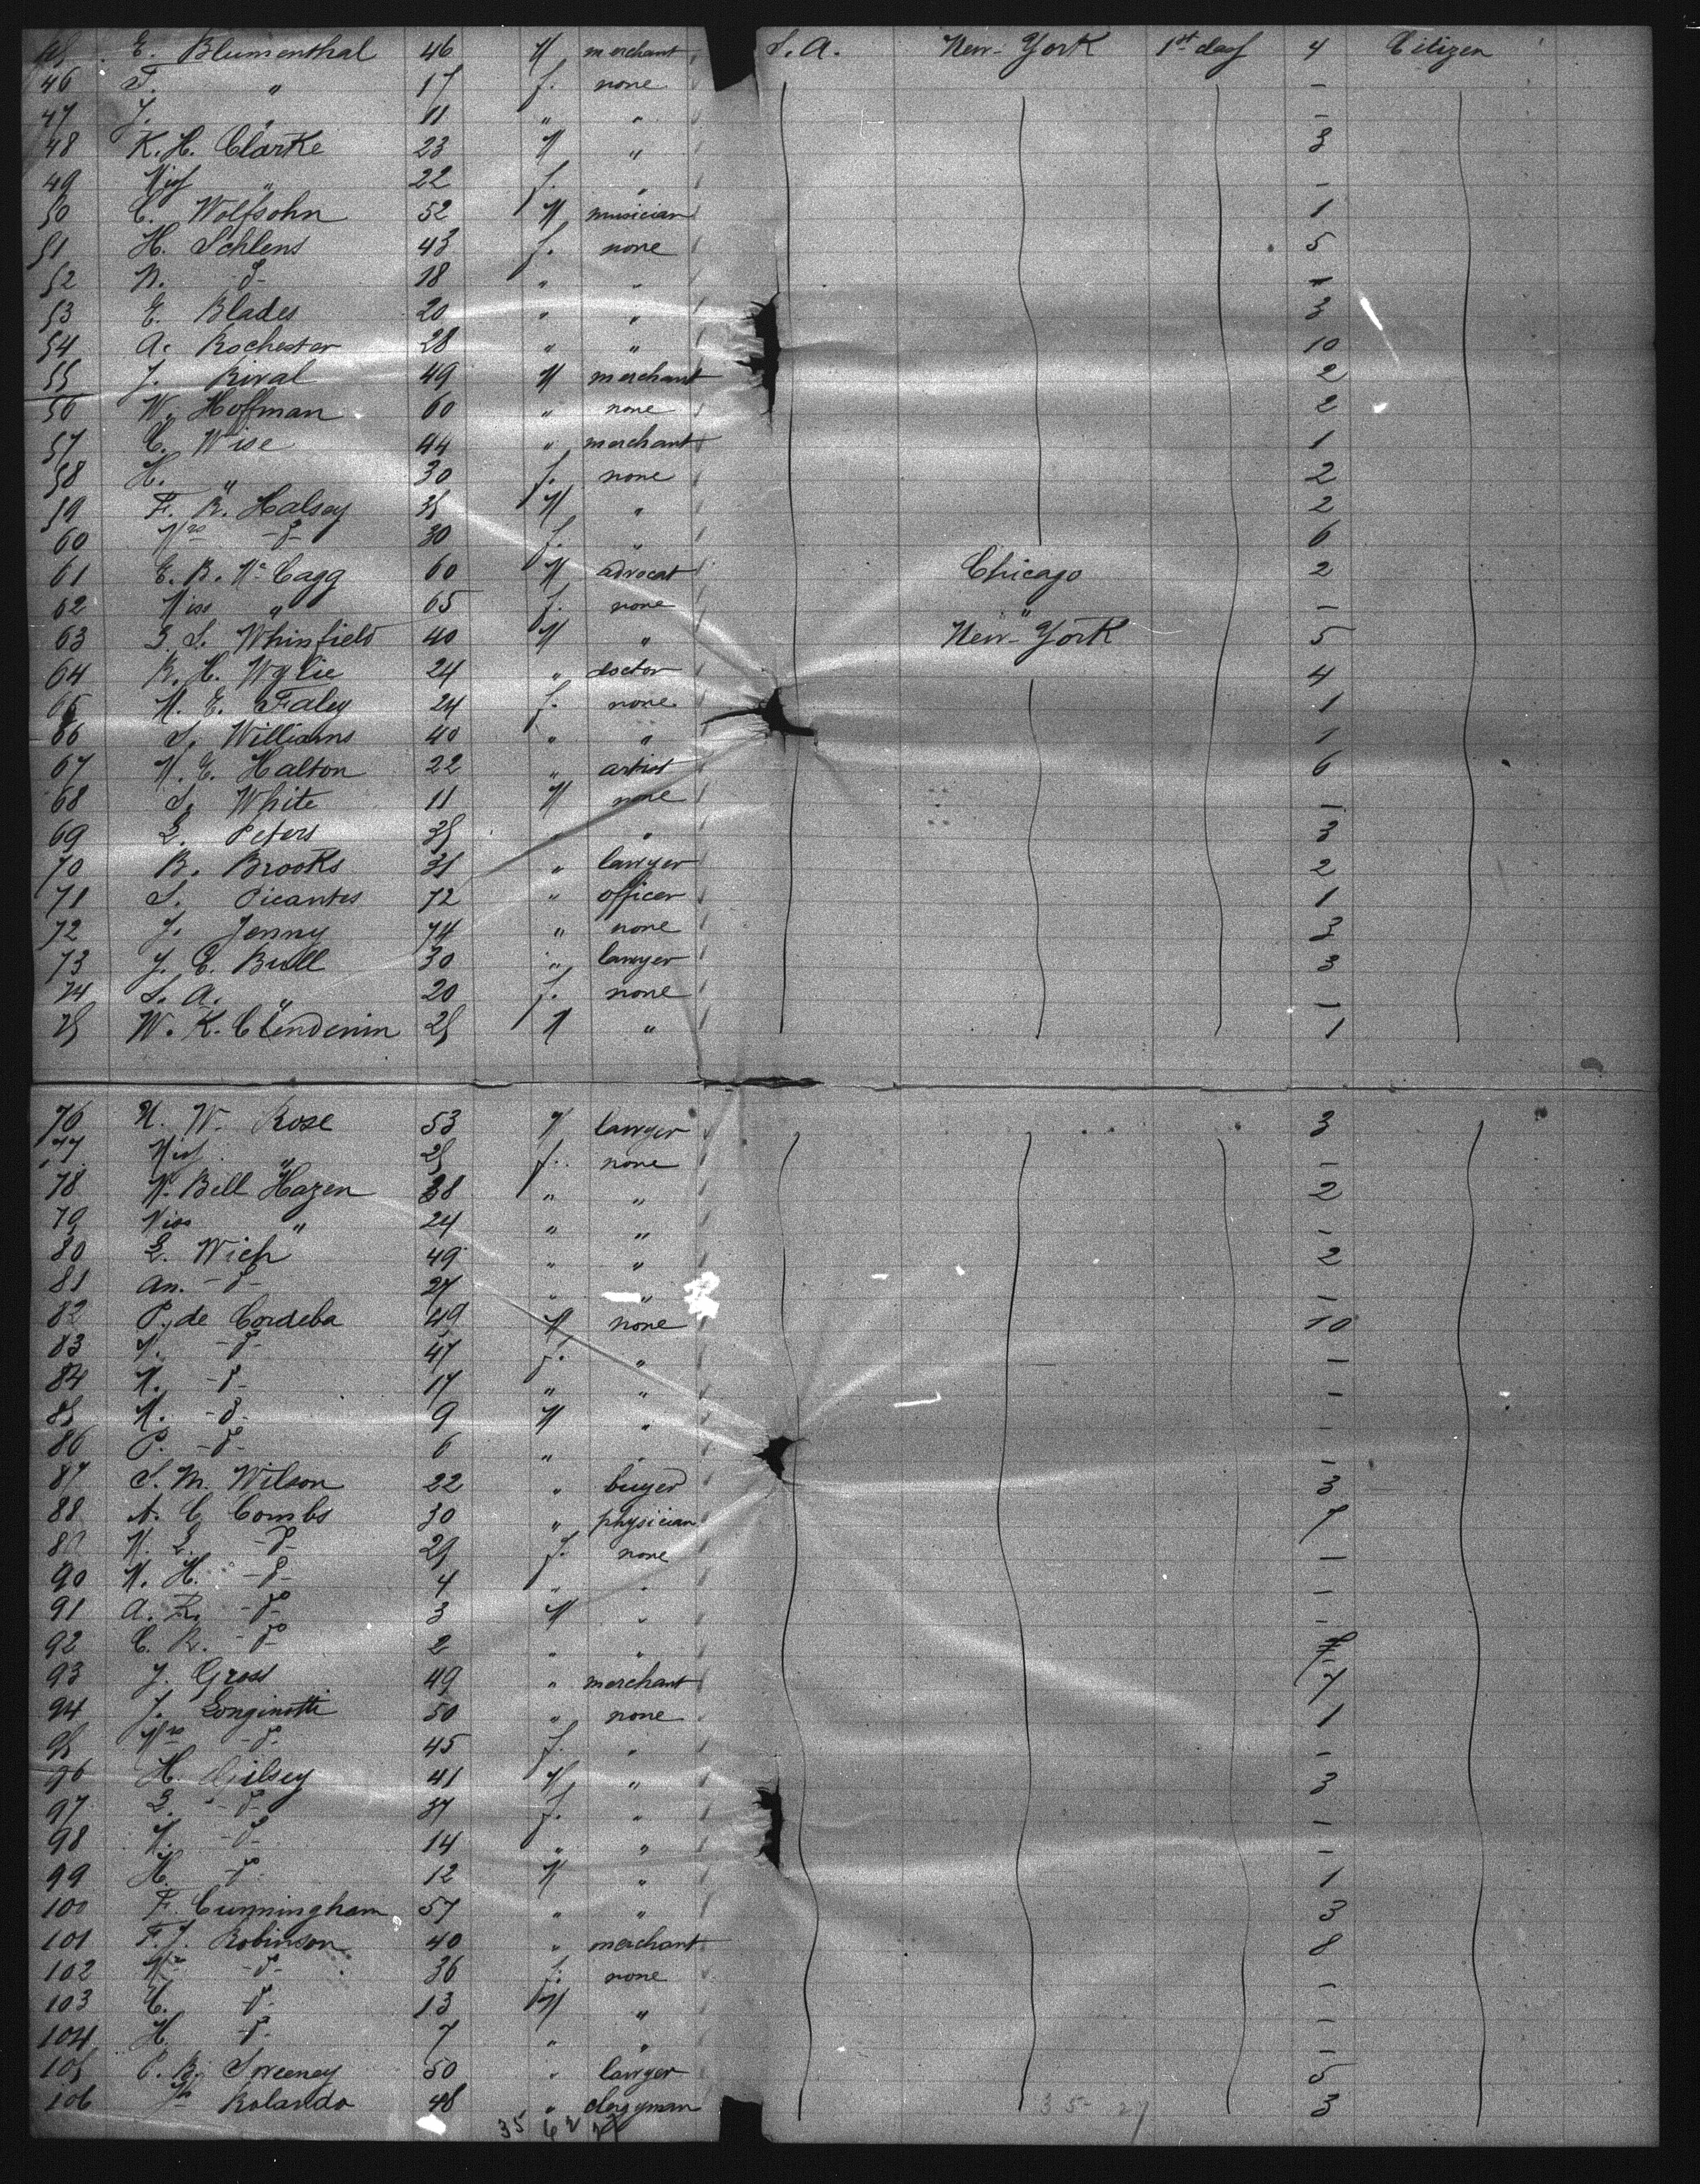 45 E. Blumenthal 46 M merchant S. A. New-York 1st day 4 Citizen
46 F. " 17 f. none –
47 J. " 11 " " –
48 K. H. Clarke 23 M " 3
49 " 22 f. " –
50 C. Wolfsohn 52 M musician 1
51 H. Schlens 43 f. none 5
52 N. -d- 18 " "
53 E. Blades 20 " " 3
54 A. Rochester 28 " " 10
55 J. Rival 49 M merchant 2
56 W. Hoffman 60 " none 2
57 C. Wise 44 " merchant 1
58 H. " 30 f. none 2
59 F. R. Halsey 35 M " 2
60 Mrs -d- 30 f. " 6
61 E. B. Mc Cagg 60 M advocat Chicago 2
62 Miss " 65 f. none " –
63 S. Whinfield 40 M " New-York 5
64 R. H. Wylie 24 " doctor 4
65 M. E. Faley 24 f. none 1
66 S. Williams 40 " " 1
67 M. E. Halton 22 " artist 6
68 S. White 11 M none –
69 L. Peters 35 " " 3
70 B. Brooks 31 " lawyer 2
71 S. Picantes 72 " officer 1
72 J. Jenny 74 " none 3
73 J. E. Bull 30 " lawyer 3
74 S. A. " 20 f. none –
75 W. K. Clendenin 25 M " 1
76 W. Rose 53 M lawyer 3
77 " 25 f. none –
78 M. Bell Hazen 38 " " 2
79 Miss " 24 " " –
80 L. Wich 49 " " 2
81 An. -d- 27 " " –
82 P. de Cordeba 49 M none 10
83 M. -d- 47 f. " –
84 M. -d- 17 " " –
85 M. -d- 9 M " –
86 P. -d- 6 " " –
87 S. M. Wilson 22 " buyer 3
88 A. C. Combs 30 " physician 7
89 M. L. -d- 25 f. none –
90 M. H. -d- 4 " " –
91 A. R. -d- 3 M " –
92 C. R. -d- 2 " "
93 J. Gross 49 " merchant 7
94 J. Longinotti 50 " none 1
95 Mrs -d- 45 f. " –
96 H. Gilsey 41 M " 3
97 L. -d- 37 f. " –
98 M. -d- 14 " " –
99 H. -d- 12 M " 1
100 F. Cunningham 57 " " 3
101 F. J. Robinson 40 " merchant 8
102 Mrs -d- 36 f. none –
103 C. -d- 13 M " –
104 H. -d- 7 " " –
105 P. B. Sweeney 50 " lawyer 5
106 Rolando 48 " clergyman 3
35 62 35-27